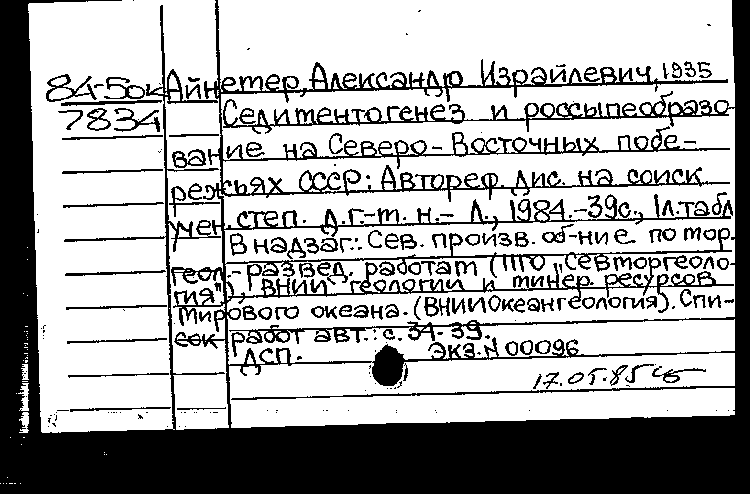 84-5ок Айнетер, Александр Израйлевич, 1935
7834 Седиментогенез и россыпеобразо-
вание на Северо-Восточных побе-
режьях СССР: Автореф. дис. на соиск
учен. степ. д.г.-м. н.- Л., 1984.-39с., 1л.табл
В надзаг.: Сев. произв. об-ние по мор.
геол.-развед. работам (ПГО „Севморгеоло-
гия"), ВНИИ геологии и минер. ресурсов
Мирового океана. (ВНИИОкеангеология). Спи-
сок работ авт.: с. 34-39.
ДСП. Экз. N 00096
17.05.85